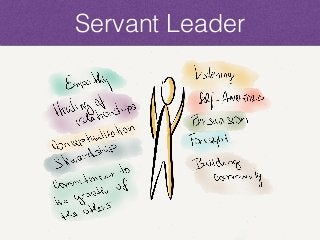 Servant Leader
Empathy
Healing of
relationships
Conceptualization
Stewardship
Commitment to
the growth of
the others
Listening
Self-Awareness
Persuasion
Foresight
Building
community